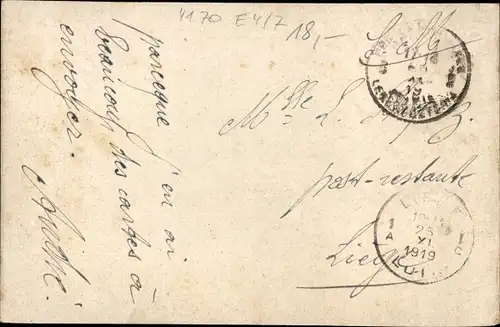 4170 E4/7 18,-
parceque j'en ai
beaucoup des cartes à
envoyer.
André.
S.M.
Mlle L. Z.
post-restante
Liège
1 1
A C
25
XI
1919